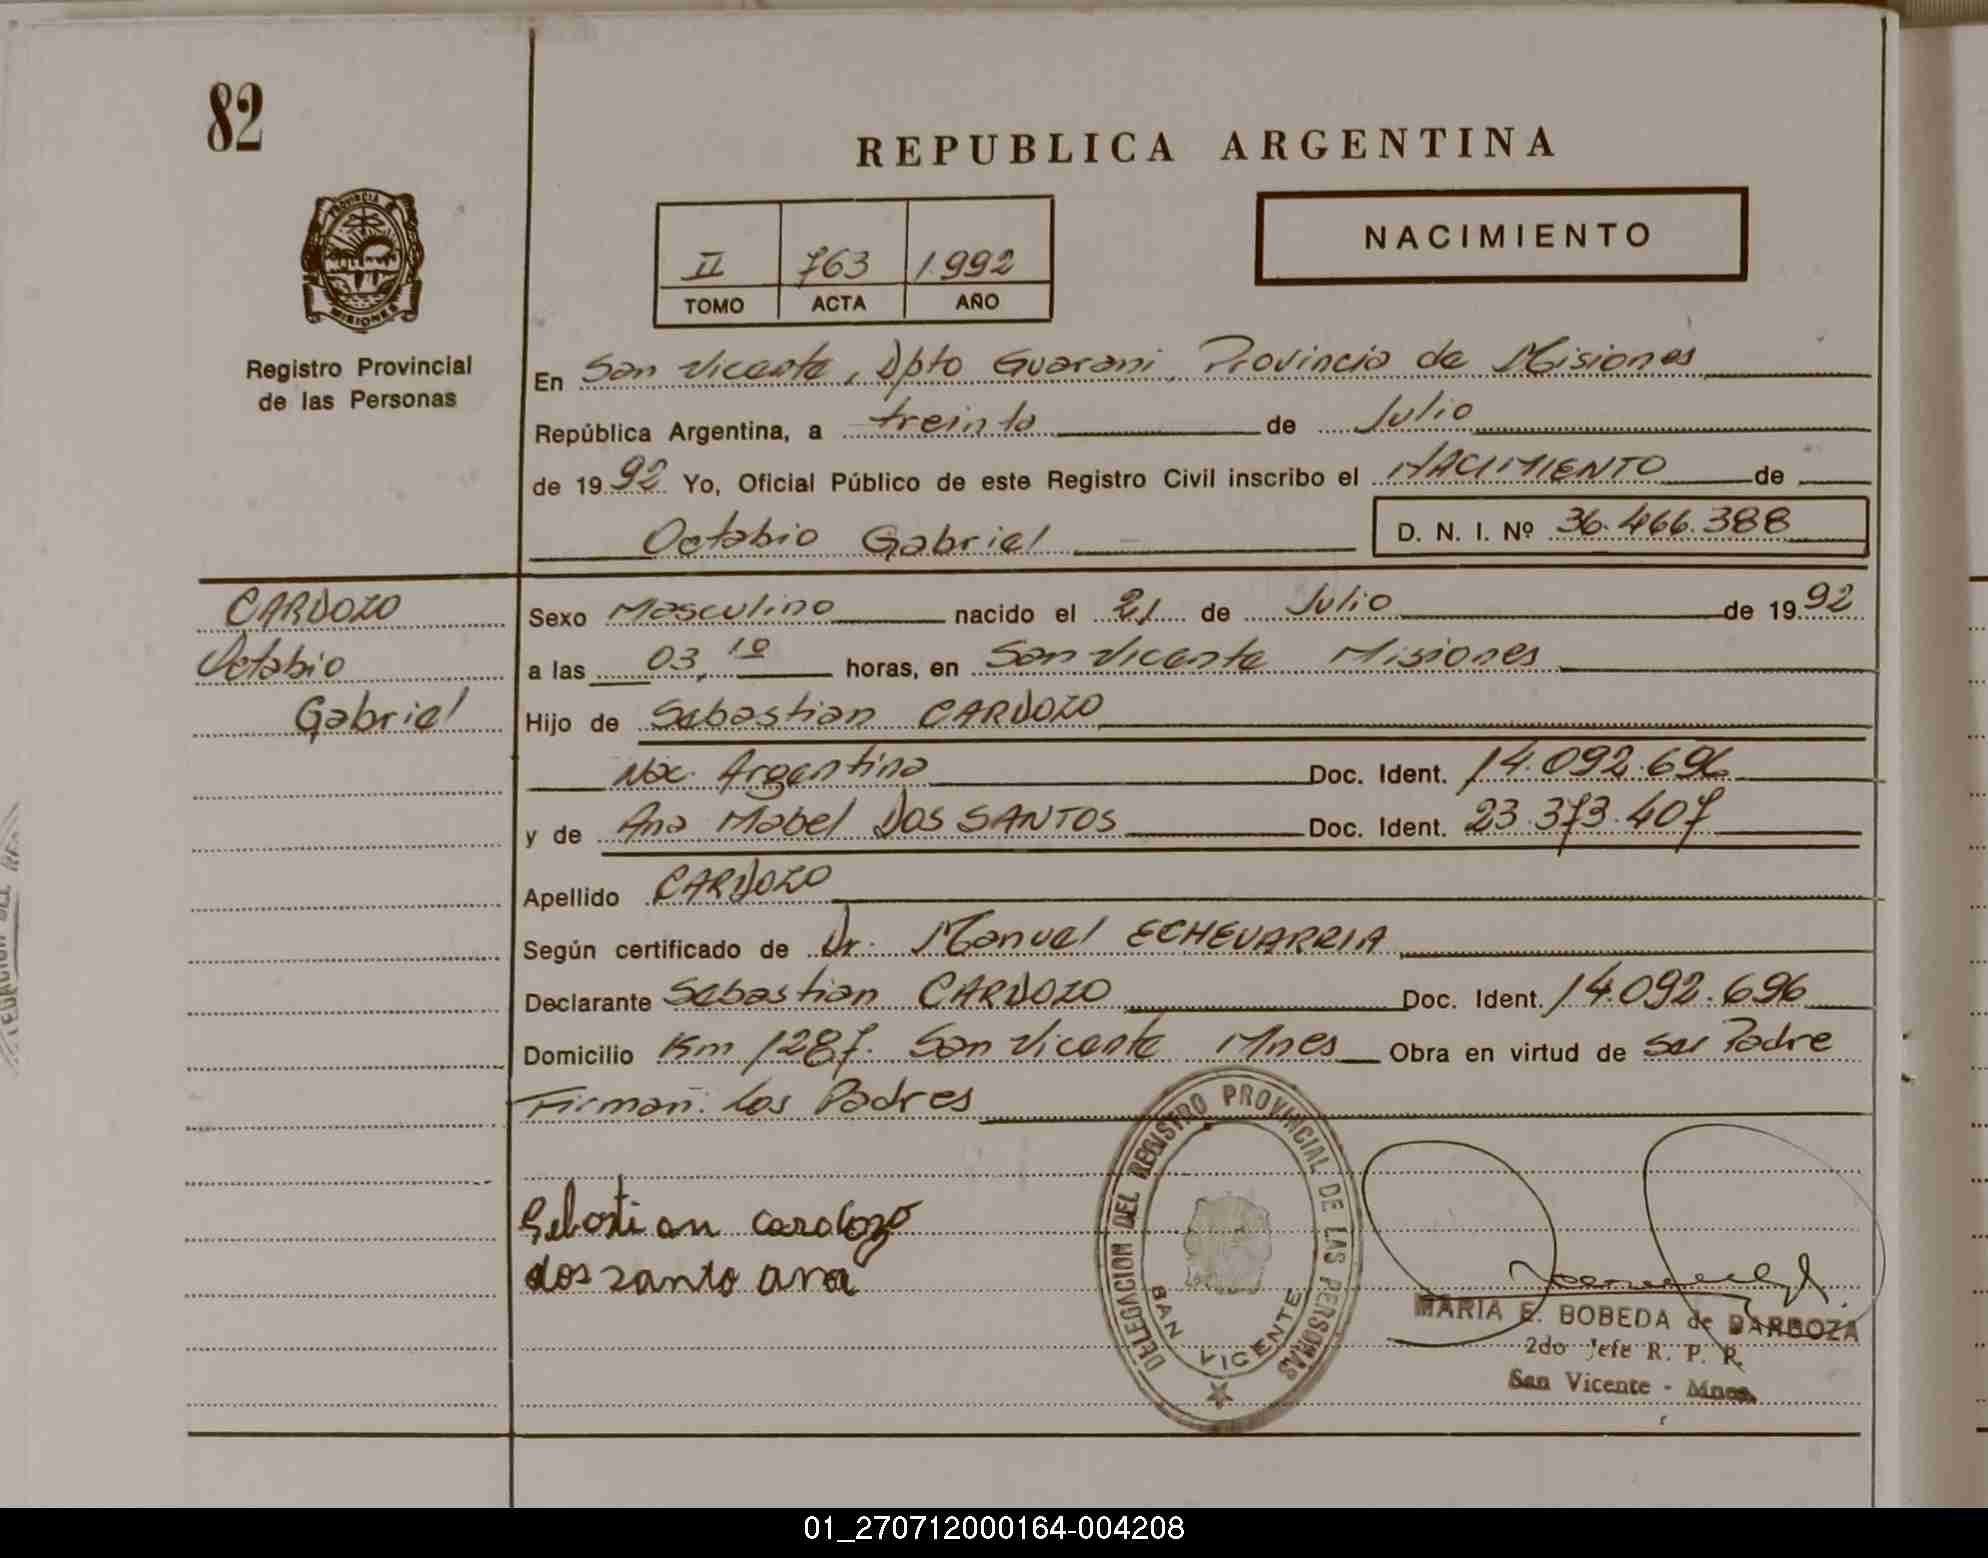 82
REPUBLICA ARGENTINA
PROVINCIA DE
MISIONES
Registro Provincial
de las Personas
II 763 1.992
TOMO ACTA AÑO
NACIMIENTO
En San Vicente, Dpto Guarani, Provincia de Misiones
República Argentina, a treinta de Julio
de 1992 Yo, Oficial Público de este Registro Civil inscribo el NACIMIENTO de
Octabio Gabriel D. N. I. Nº 36.466.388
CARDOZO
Octabio
Gabriel
Sexo Masculino nacido el 21 de Julio de 1992
a las 03,10 horas, en San Vicente Misiones
Hijo de Sebastian CARDOZO
Nac. Argentina Doc. Ident. 14.092.696
y de Ana Mabel DOS SANTOS Doc. Ident. 23.373.407
Apellido CARDOZO
Según certificado de Dr. Manuel ECHEVARRIA
Declarante Sebastian CARDOZO Doc. Ident. 14.092.696
Domicilio Km 1287. San Vicente Mnes Obra en virtud de Ser Padre
Firman: Los Padres
Sebastian cardozo
dos santo ana
DELEGACION DEL REGISTRO PROVINCIAL DE LAS PERSONAS
SAN VICENTE
MARIA E. BOBEDA de BARBOZA
2do Jefe R. P. P.
San Vicente - Mnes.
01_270712000164-004208